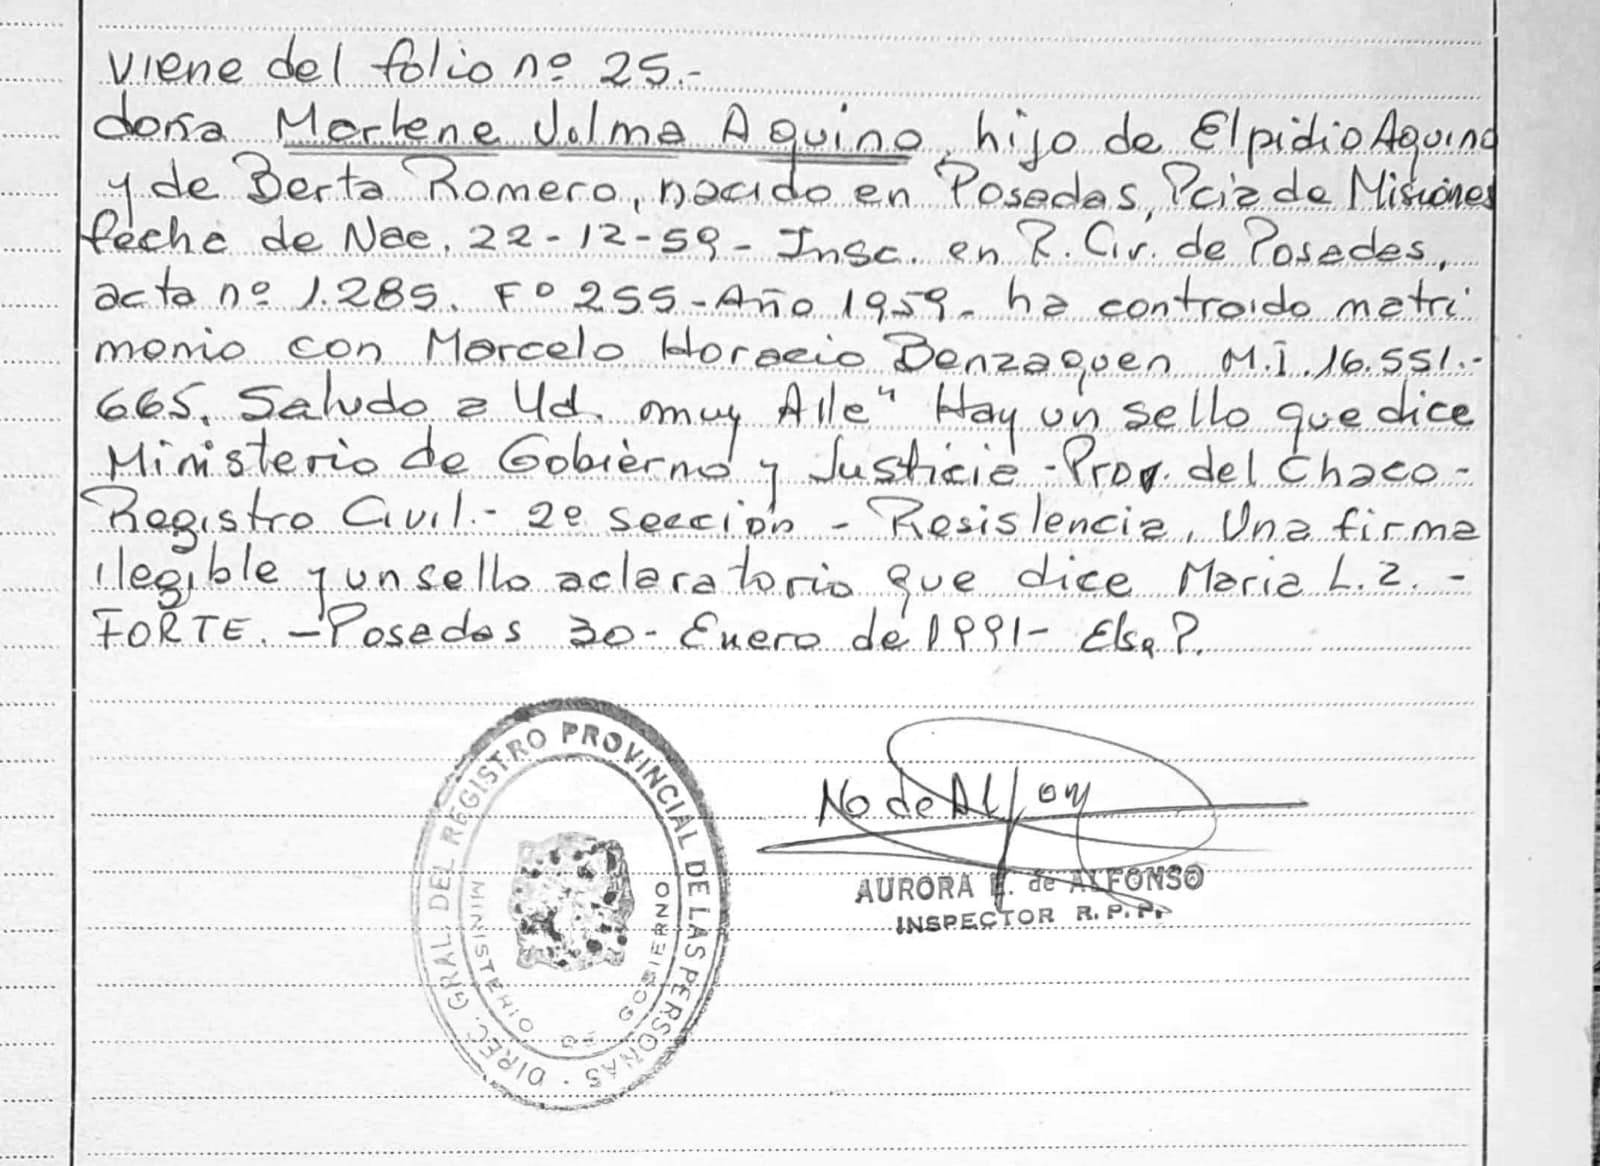 viene del folio nº 25.-
doña Marlene Jolma Aquino, hijo de Elpidio Aquino
y de Berta Romero, nacido en Posadas, Pcia de Misiones
fecha de Nac. 22-12-59- Insc. en R. Civ. de Posadas,
acta nº 1.285. Fº 255-Año 1959- ha contraido matri
monio con Marcelo Horacio Benzaquen M.I. 16.551.-
665. Saludo a Ud. muy Atte" Hay un sello que dice
Ministerio de Gobierno y Justicia -Prov. del Chaco-
Registro Civil.- 2º sección - Resistencia. Una firma
ilegible y un sello aclaratorio que dice Maria L. Z. -
FORTE. -Posadas 30- Enero de 1991- Elsa P.
DIREC. GRAL. DEL REGISTRO PROVINCIAL DE LAS PERSONAS ·
MINISTERIO DE GOBIERNO
AURORA de ALFONSO
INSPECTOR R.P.P.